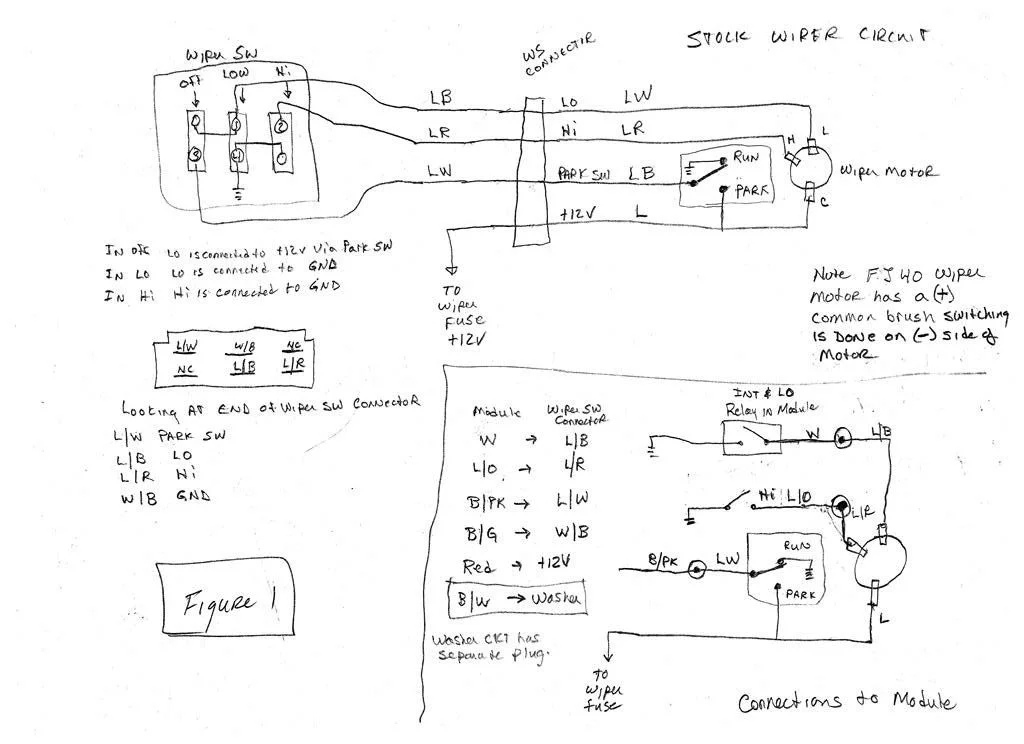 STOCK WIPER CIRCUIT
WIPER SW
OFF LOW Hi
0 1 2
3 4 0
WS CONNECTOR
LB LO LW
LR Hi LR
LW PARK SW LB
+12V L
RUN
PARK
H L
C
WIPER MOTOR
TO WIPER FUSE +12V
IN OFF LO is connected to +12V via Park SW
IN LO LO is connected to GND
IN Hi Hi is connected to GND
L/W W/B NC
NC L/B L/R
Looking AT END OF WIPER SW CONNECTOR
L/W PARK SW
L/B LO
L/R Hi
W/B GND
Figure 1
Note FJ40 WIPER
MOTOR HAS a (+)
common brush switching
is DONE ON (-) side of
MOTOR
Module WIPER SW Connector
W → L/B
L/O → L/R
B/PK → L/W
B/G → W/B
Red → +12V
B/W → Washer
Washer CKT has
separate plug.
INT & LO
Relay in Module
W L/B
Hi L/O L/R
B/PK LW
RUN
PARK
L
TO
WIPER
fuse
Connections to Module